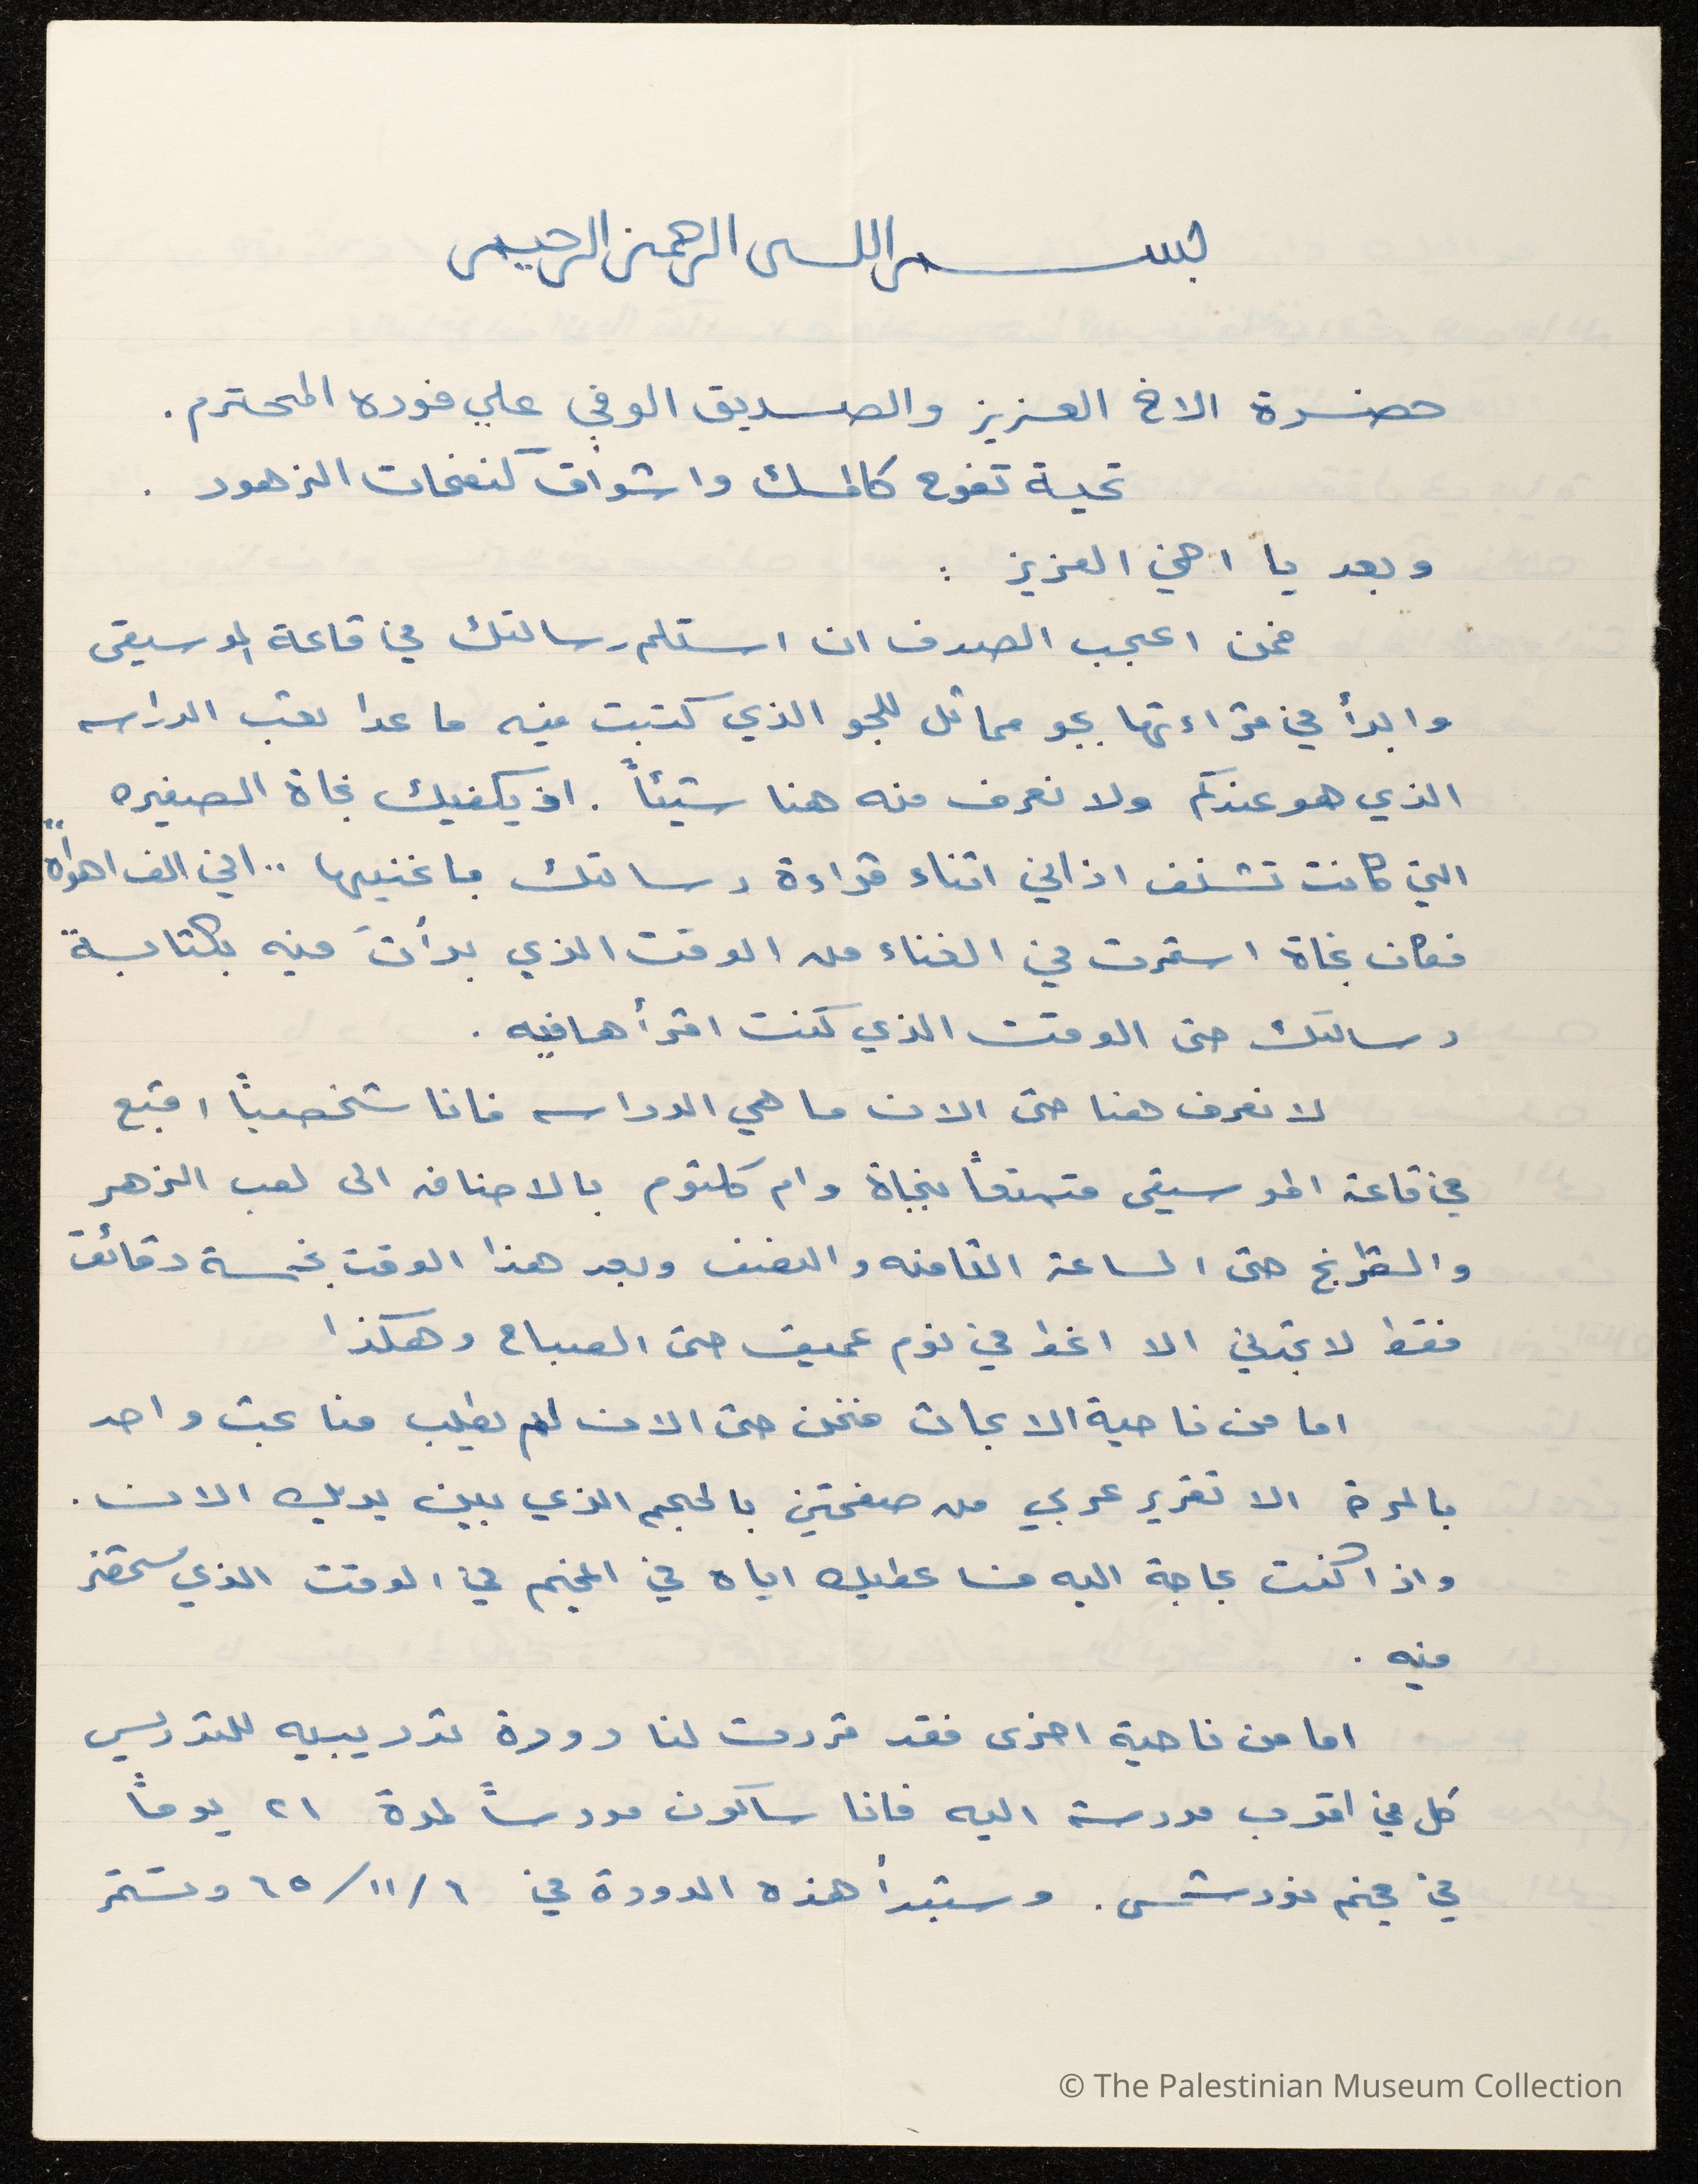 بسم الله الرحمن الرحيم
حضرة الاخ العزيز والصديق الوفي علي فوده المحترم .
تحية تفوح كالمسك واشواق كنفحات الزهور .
وبعد يا اخي العزيز :
فمن اعجب الصدف ان استلم رسالتك في قاعة الموسيقى
وابدأ في قراءتها بجو مماثل للجو الذي كتبت فيه ما عدا لعب الدراسه
الذي هو عندكم ولا نعرف منه هنا شيئاً . اذ يكفيك نجاة الصغيره
التي كانت تشنف اذاني اثناء قراءة رسالتك باغنيها .. اني الف اهواه "
فكان نجاة استمرت في الغناء من الوقت الذي بدأتَ فيه بكتابة
رسالتك حتى الوقت الذي كنت اقرأها فيه .
لا نعرف هنا حتى الان ما هي الدراسه فانا شخصياً اقبع
في قاعة الموسيقى متمتعاً بنجاة وام كلثوم بالاضافه الى لعب الزهر
والشطرنج حتى الساعة الثامنه والنصف وبعد هذا الوقت بخمسة دقائق
فقط لا تجدني الا اغط في نوم عميق حتى الصباح وهكذا
اما من ناحية الابحاث فنحن حتى الان لم يطلب منا بحث واحد
بالمرة الا تقرير عربي من صفحتين بالحجم الذي بين يديك الان .
واذا كنت بحاجة اليه فساعطيك اياه في المخيم في الوقت الذي ستحضر
فيه .
اما من ناحية اخرى فقد قررت لنا دورة تدريبيه للتدريس
كل في اقرب مدرسة اليه فانا ساكون مدرساً لمدة ٢١ يوماً
في مخيم نور شمس . وستبدأ هذه الدورة في ٦ / ١١ / ٦٥ وتستمر
© The Palestinian Museum Collection